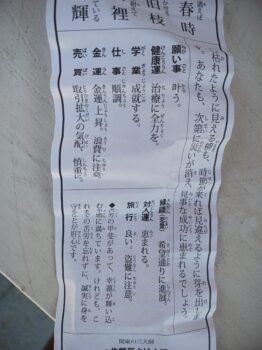 春時
旧枝
裡
ている
輝
枯れたように見える柳も、時期が来れば見違えるように芽を出し
あなたも、次第に災いが消え、見事な成功に恵まれるでしょう。
願い事 叶う。
健康運 治療に全力を。
学業 成就する。
仕事 順調。
金運 金運上昇。浪費に注意。
売買 取引拡大の気配。慎重に。
縁談(恋愛) 希望通りに進展。
対人運 恵まれる。
旅行 良い。盗難に注意。
の甲斐があって、幸運が舞い込
む予感に満ちています。けれども、こ
れまでの苦労を忘れずに、誠実に身を
守ることが肝心です。
関東の三大師